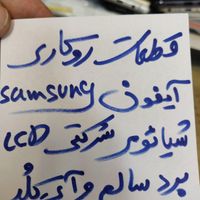 قطعات روکاری
آیفون samsung
شیائومی شرکتی LCD
برد سالم و آی کلد